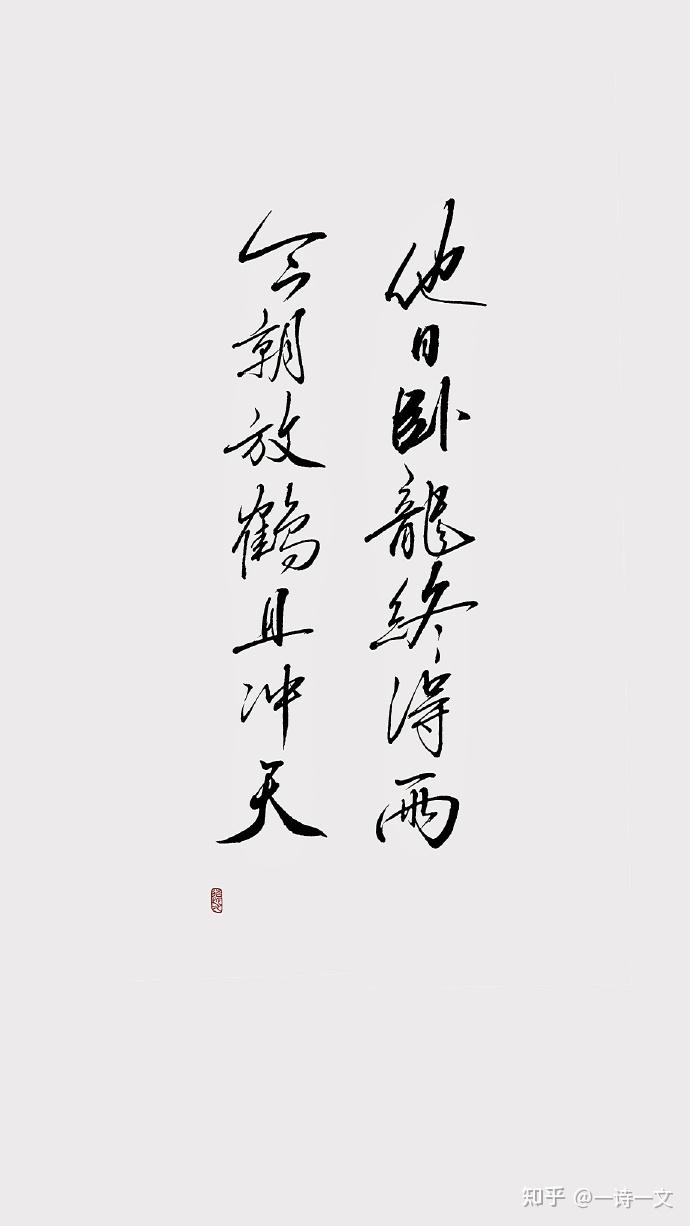 他日卧龍終得雨
今朝放鶴且冲天
知乎 @一诗一文